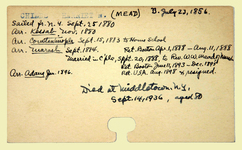 (MEAD) B. July 23, 1856.
Sailed fr. N.Y. Sept. 25, 1880
Arr. Nov. 1880
Arr. Constantinople Sept. 15, 1883 to Home School
Arr. Marash Sept. 1884. Ret. Boston Apr. 1, 1888 - Aug. 11, 1888
Married - C'ple, Sept. 20, 1888, to Rev.
Ret. Boston June 17, 1893 - Dec. 1895
Arr. Adana Jan. 1896. Ret. USA, & resigned.
Died at Middletown, N.Y.
Sept. 14, 1936, aged 80